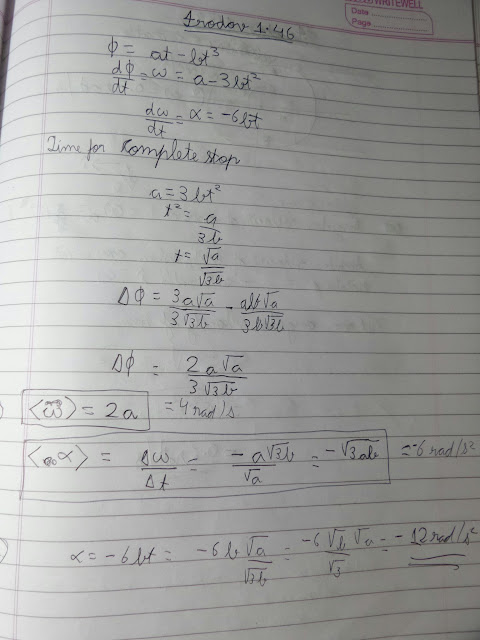 WRITEWELL
Date
Page
Irodov 1.46
ϕ = at - bt³
dϕ/dt = ω = a - 3bt²
dω/dt = α = -6bt
Time for Complete stop
a = 3bt²
t² = a/3b
t = √a/√3b
Δϕ = 3a√a/3√3b - ab√a/3b√3b
Δϕ = 2a√a/3√3b
⟨ω⟩ = 2a = 4 rad/s
⟨α⟩ = Δω/Δt = -a√3b/√a = -√3ab = -6 rad/s²
α = -6bt = -6b√a/√3b = -6√b√a/√3 = -12 rad/s²